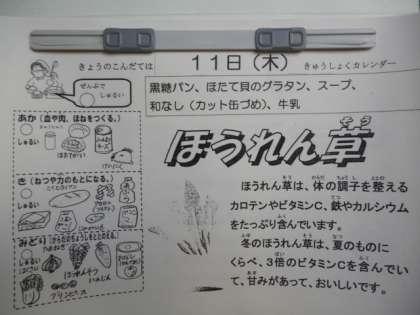 きょうのこんだては
11日（木）
きゅうしょくカレンダー
ぜんぶで
しゅるい
黒糖パン、ほたて貝のグラタン、スープ、
和なし（カット缶づめ）、牛乳
あか（血や肉、ほねをつくる。）
しゅるい
き（ねつや力のもとになる。）
しゅるい
みどり（からだのちょうしをととのえる。）
しゅるい
はくさい
にんじん
プランセス
ほうれん草
そう
ほうれん草は、体の調子を整える
カロテンやビタミンC、鉄やカルシウム
をたっぷり含んでいます。
冬のほうれん草は、夏のものに
くらべ、3倍のビタミンCを含んでい
て、甘みがあって、おいしいです。